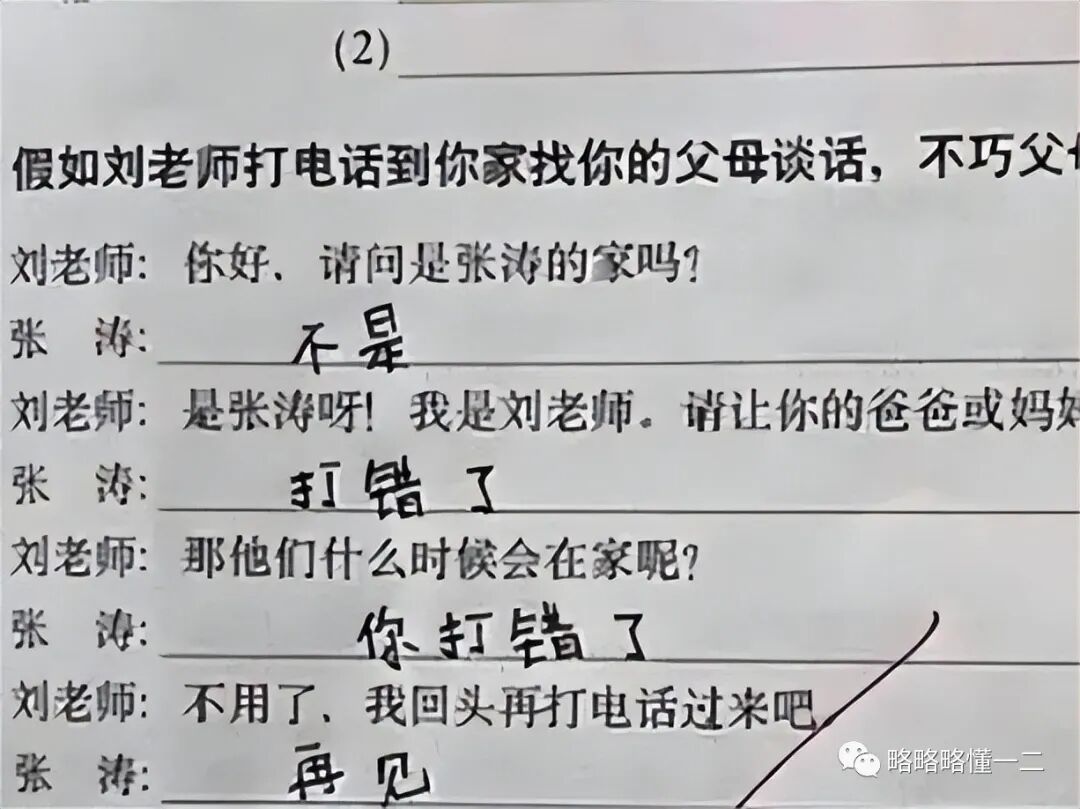 (2)
假如刘老师打电话到你家找你的父母谈话，不巧父
刘老师: 你好、请问是张涛的家吗?
张 涛: 不是
刘老师: 是张涛呀! 我是刘老师。请让你的爸爸或妈
张 涛: 打错了
刘老师: 那他们什么时候会在家呢?
张 涛: 你打错了
刘老师: 不用了、我回头再打电话过来吧
张 涛: 再见
略略略懂一二